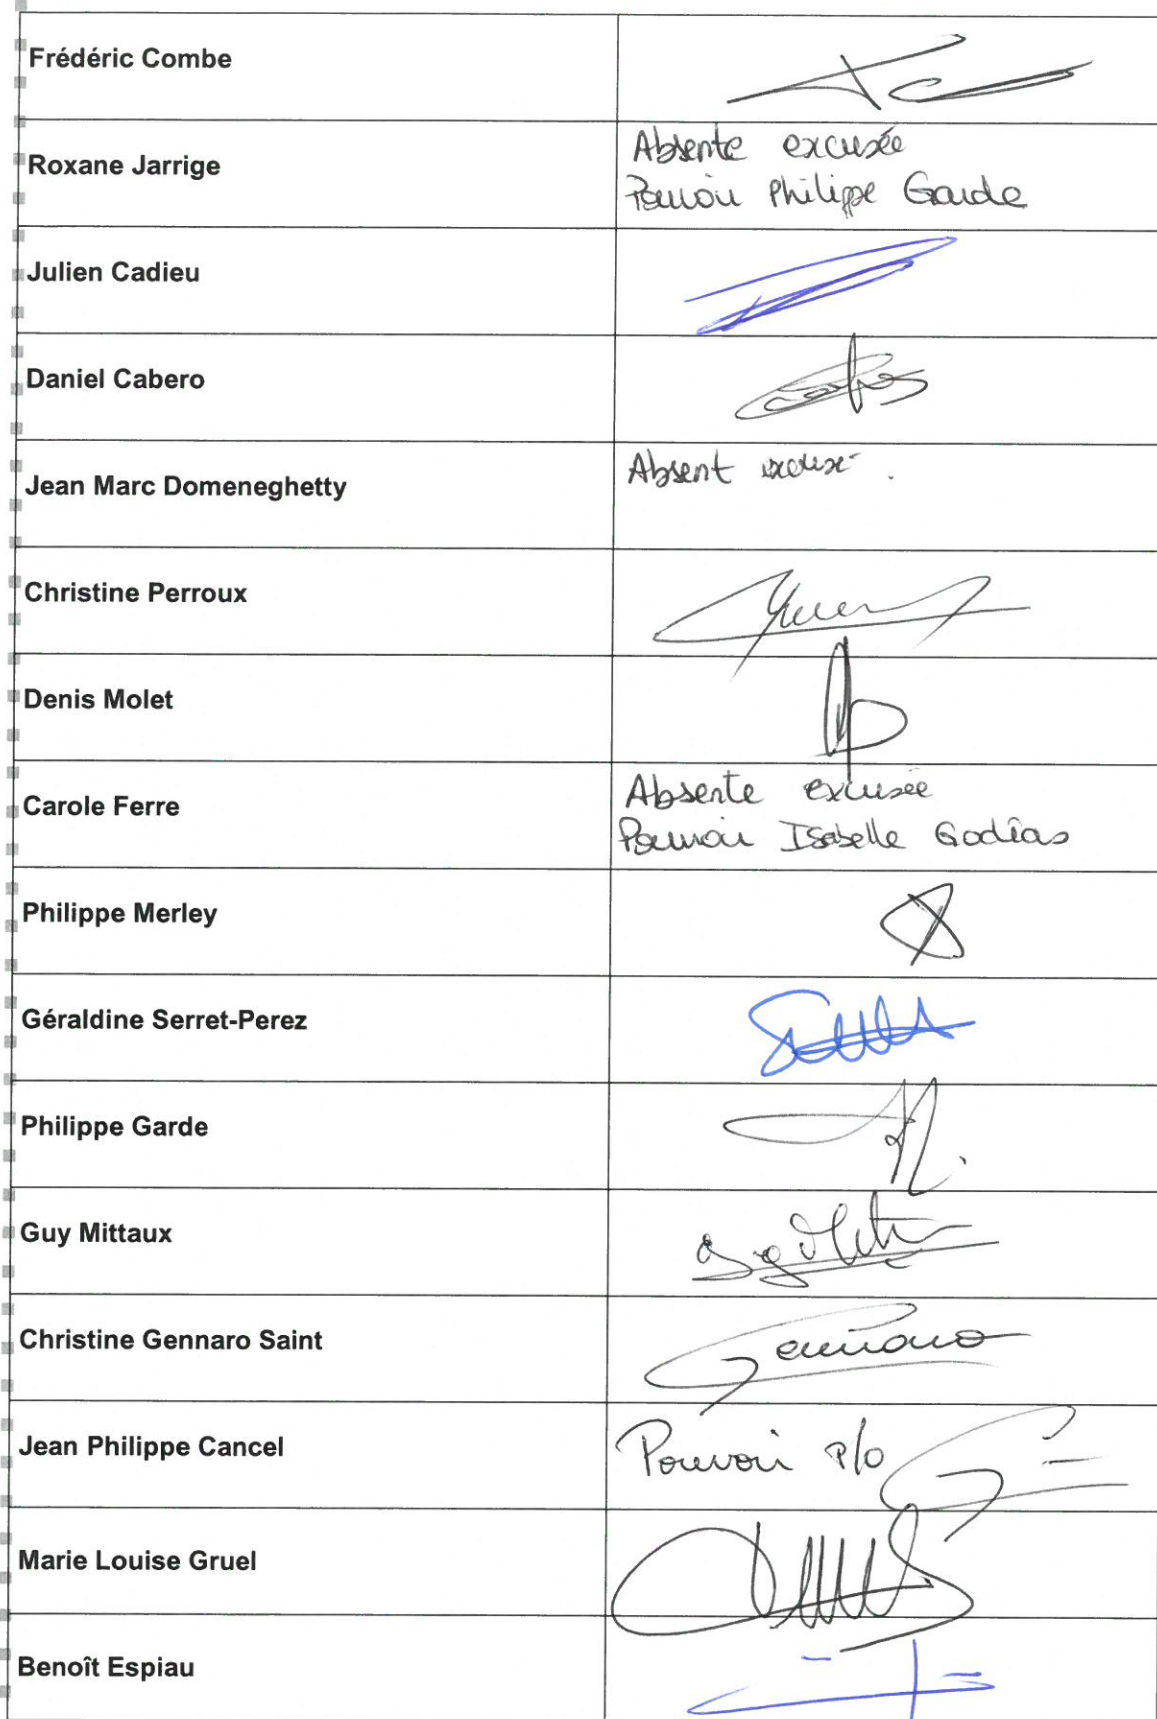 Frédéric Combe
Roxane Jarrige
Absente excusée
Pouvoir Philippe Garde
Julien Cadieu
Daniel Cabero
Jean Marc Domeneghetty
Absent excusé.
Christine Perroux
Denis Molet
Carole Ferre
Absente excusée
Pouvoir Isabelle Godéas
Philippe Merley
Géraldine Serret-Perez
Philippe Garde
Guy Mittaux
Christine Gennaro Saint
Gennaro
Jean Philippe Cancel
Pouvoir P/o
Marie Louise Gruel
Benoît Espiau